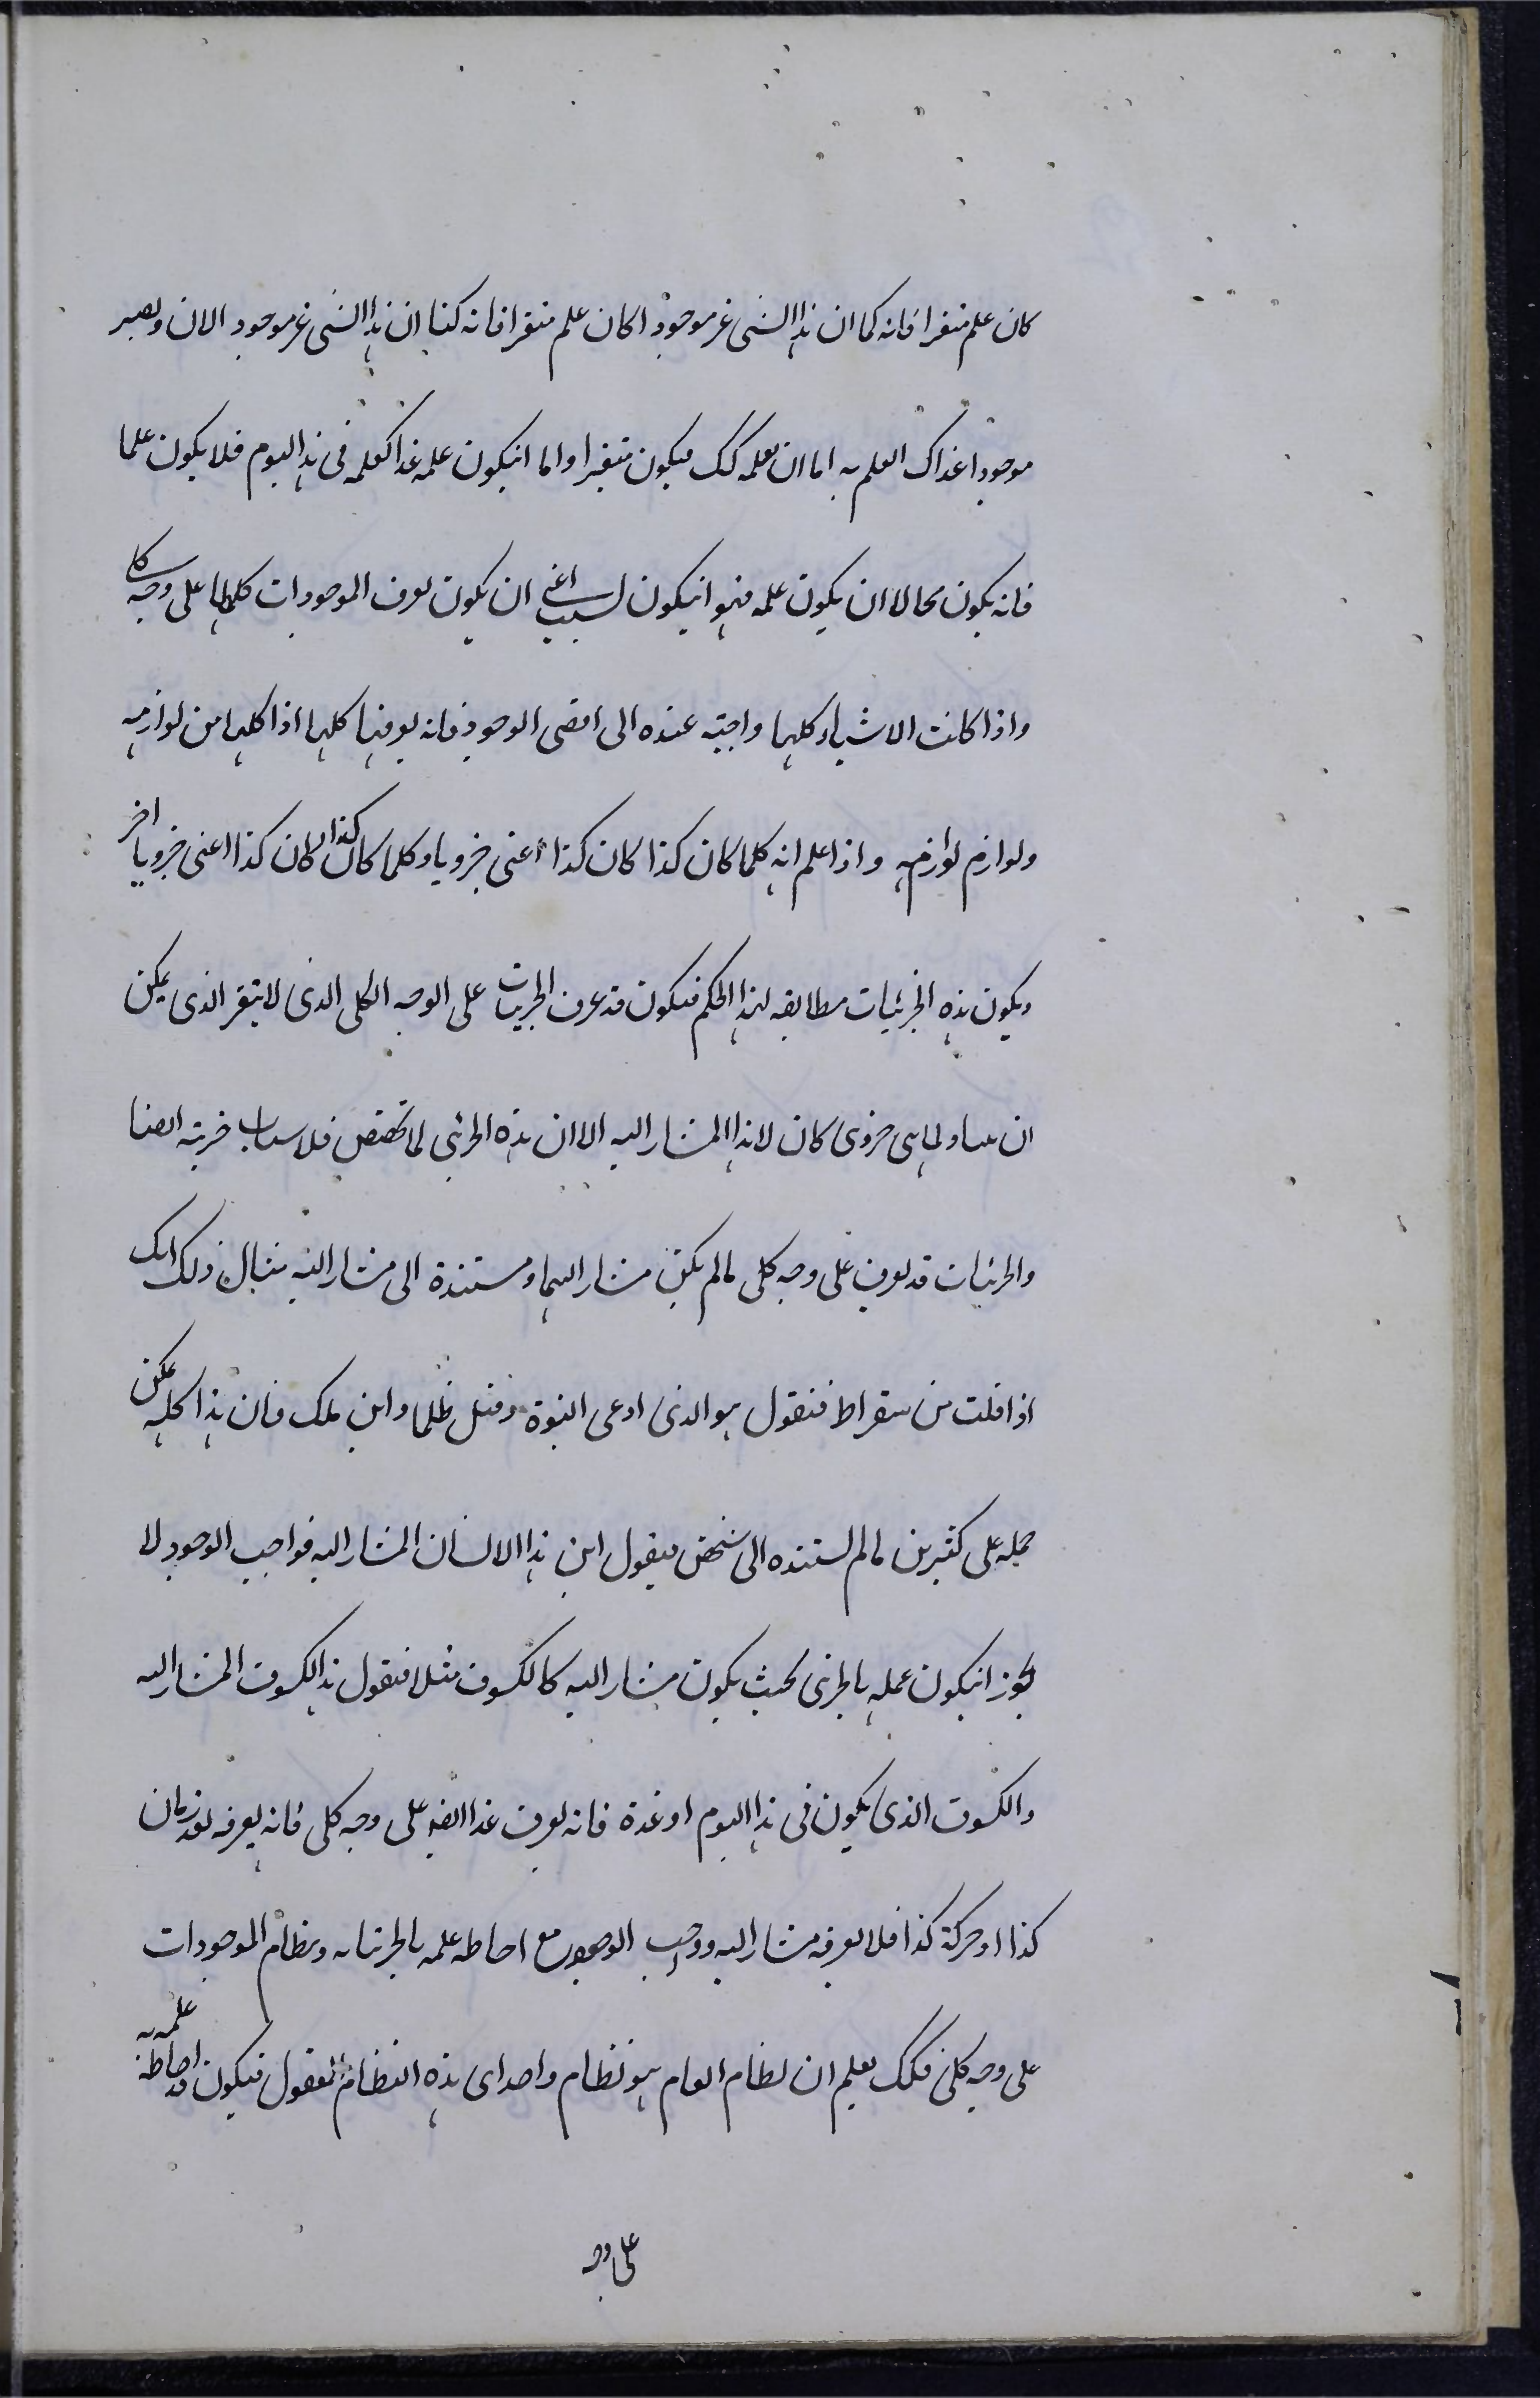 كان علم متغيرا فانه كما ان هذا الشى غير موجود اكان علم متغيرا فانه كنا ان هذا الشى غير موجود الان ويصير
موجودا غدا ك العلم به اما ان يعلمه كك فيكون متغيرا واما انيكون علمه غدا كعلمه فى هذا اليوم فلا يكون علما
فانه يكون محالا ان يكون علمه فهو انيكون لسبب اعنى ان يكون يعرف الموجودات كلها على وجه كلى
واذا كانت الاشياء كلها واجبة عنده الى اقصى الوجود فانه يعرفها كلها اذا كلها من لوازمه
ولوازم لوازمه واذا علم انه كلما كان كذا كان كذا اعنى جزويا وكلما كان كذا كان كذا اعنى جزويا اخر
ويكون هذه الجزئيات مطابقه لهذا الحكم فيكون قد عرف الجزئيات على الوجه الكلى الذى لا يتغير الذى يمكن
ان اى جزوى كان لا هذا المشار اليه الا ان هذه الجزئى لما تخصص فلاسباب جزئية ايضا
والجزئيات قد يعرف على وجه كلى مالم يكن مشارا اليها ومستندة الى مشار اليه مثال ذلك انك
اذا قلت من سقراط فنقول هو الذى ادعى النبوة وقتل ظلما وابن ملك فان هذا كله يمكن
حمله على كثيرين مالم تستنده الى شخص فيقول ابن هذا الانسان المشار اليه فواجب الوجود لا
يجوز انيكون عمله بالجزئى بحيث يكون مشار اليه كالكسوف مثلا فنقول هذا الكسوف المشار اليه
والكسوف الذى يكون فى هذا اليوم او غدة فانه يعرف غدا ايضا على وجه كلى فانه يعرفه بعد زمان
كذا او حركة كذا فلا يعرفه مشار اليه وواجب الوجود مع احاطه علمه بالجزئيات ونظام الموجودات
على وجه كلى فكك يعلم ان نظام العام هو نظام واحد اى هذه النظام المعقول فيكون قد احاطة علمه به
على وجه